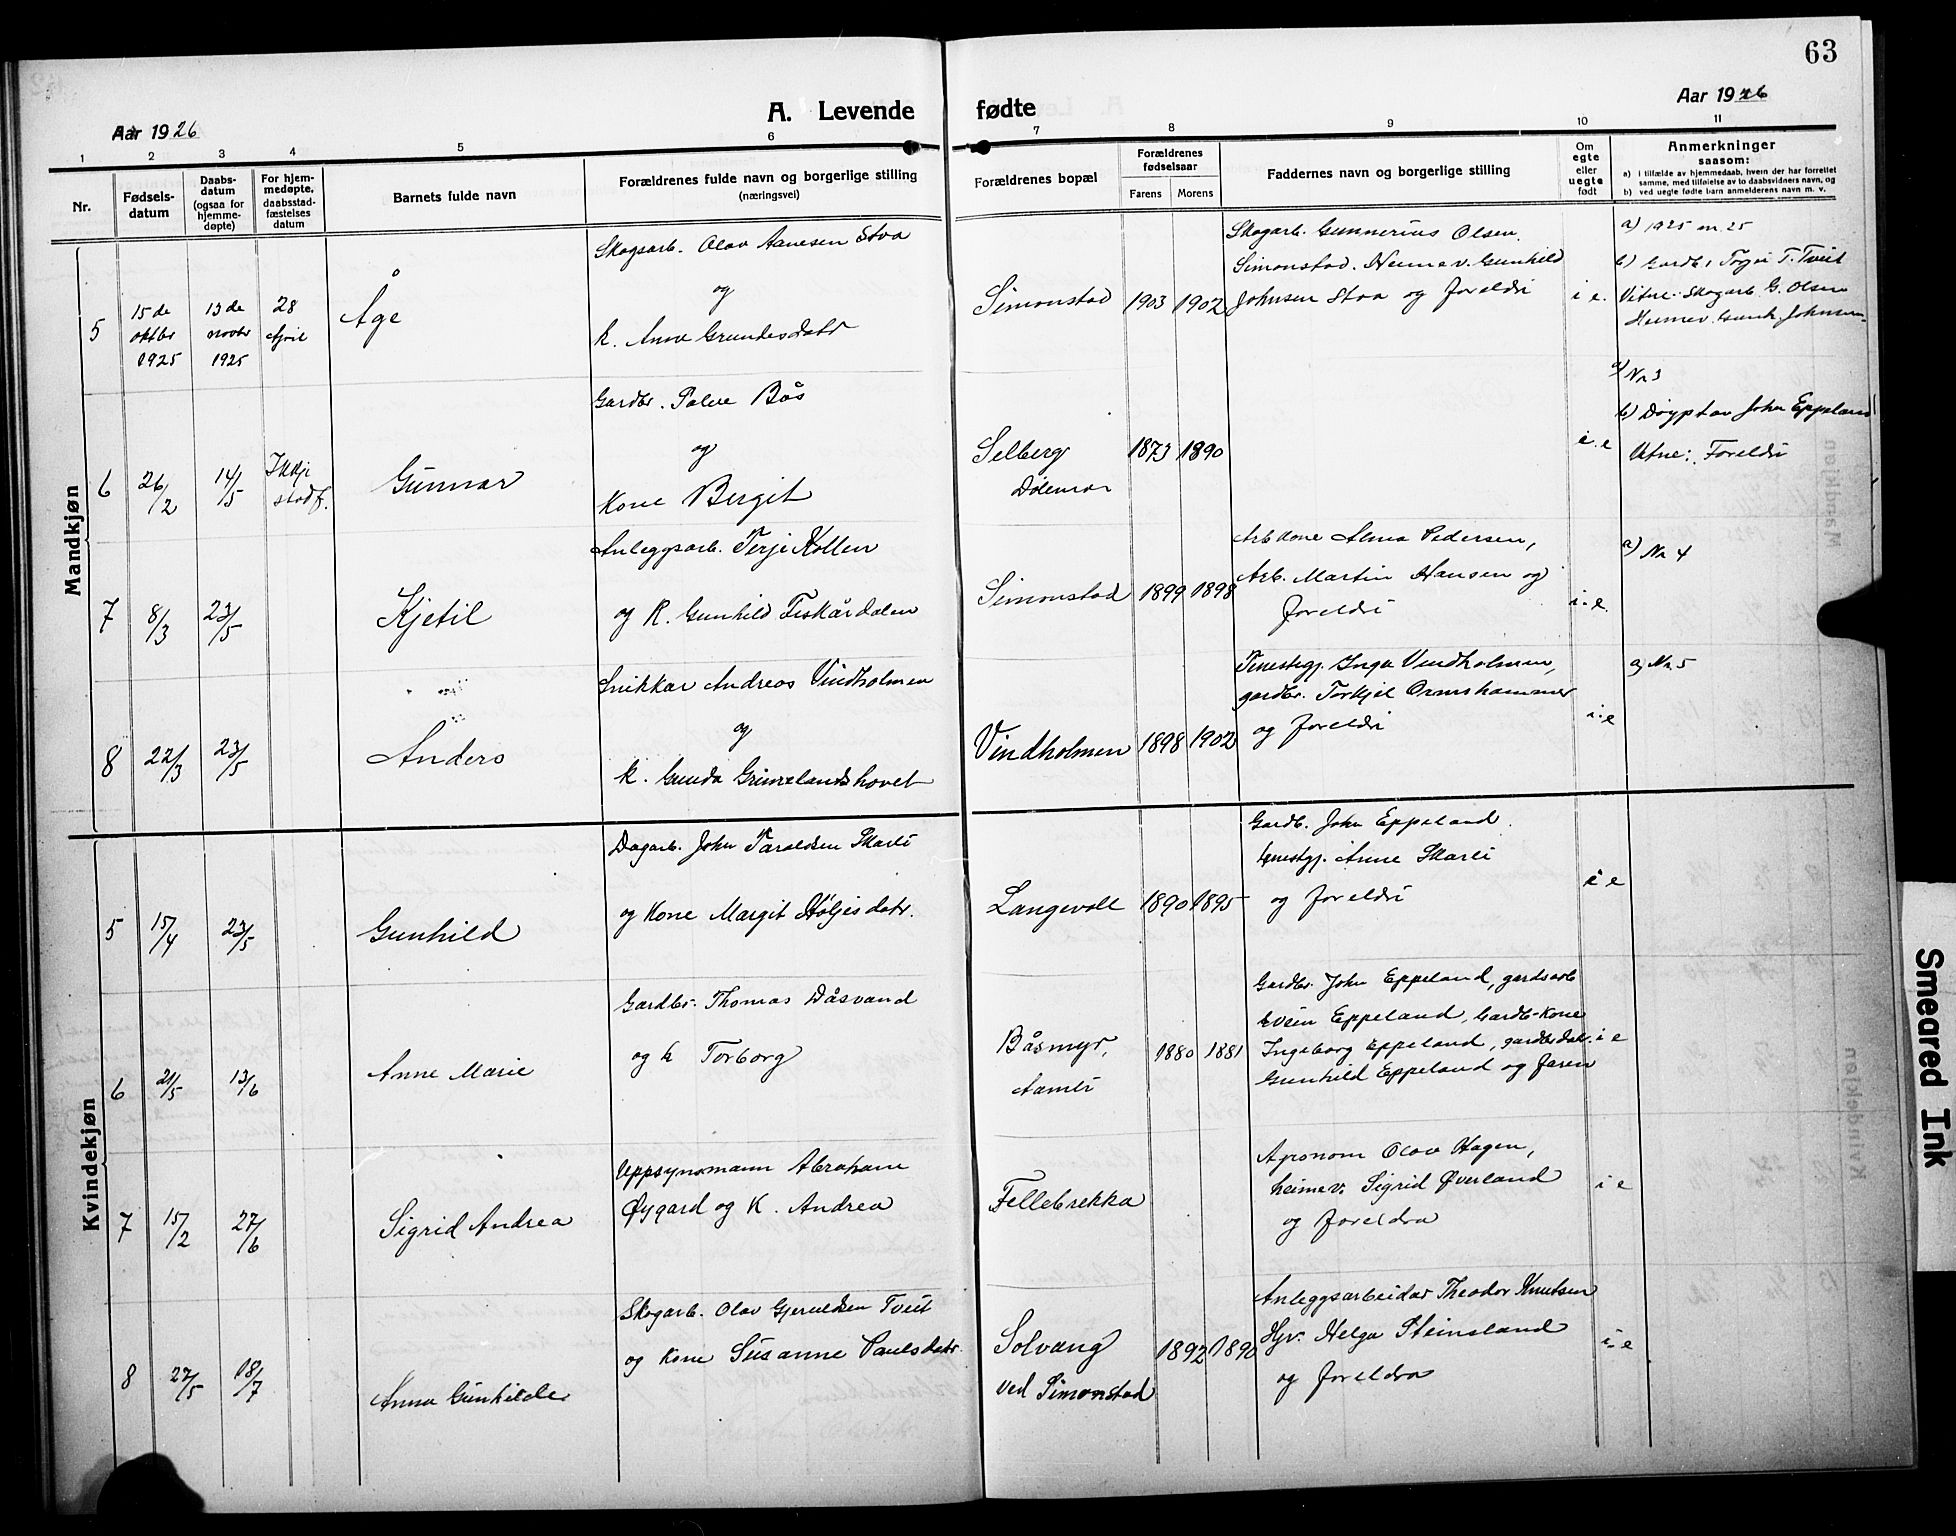 63
A. Levende fødte
Aar 1926
Aar 1926
1 2 3 4 5 6 7 8 9 10 11
Nr.
Fødsels-
datum
Daabs-
datum
(ogsaa for
hjemme-
døpte)
For hjem-
medøpte,
daabsstad-
fæstelses
datum
Barnets fulde navn
Forældrenes fulde navn og borgerlige stilling
(næringsvei)
Forældrenes bopæl
Forældrenes
fødselsaar
Farens Morens
Faddernes navn og borgerlige stilling
Om
egte
eller
uegte
født
Anmerkninger
saasom:
a) i tilfælde av hjemmedaab, hvem der har forrettet
samme, med tilføielse av to daabsvidners navn, og
b) ved uegte fødte barn anmelderens navn m. v.
Mandkjøn
5
15de
oktbr
1925
13de
novbr
1925
28
April
Åge
Skogsarb. Olav Aanesen Stva
og
k. Anne Grundesdatr
Simonstad
1903 1902
Skogarb. Gunnerius Olsen.
Simonstad. Heimev. Gunhild
Johnsen Stva og foreldri
i e.
a) 1925 nr. 25
b) Gardbr. Togei T. Tveit
Vitne: Skogarb. G. Olsen
Heimev. Gunh. Johnsen
6
26/2
14/5
Ikkje
stadf.
Gunnar
Gardbr. Salve Bås
og
Kone Bergit
Selberg
Dølemo
1873 1890
i. e
a) Nr 3
b) John Eppeland
Vitne: Foreldri
7
8/3
23/5
Kjetil
Anleggsarb. Terje Kollen
og K. Gunhild Fiskårdalen
Simonstad
1899 1898
Arb kone Alma Pedersen,
Arb. Martin Hansen og
foreldri
i. e.
a) Nr 4
8
22/3
23/5
Anders
Snikkar Andreas Vindholmen
og
k. Gunda Grimelandshovet
Vindholmen
1898 1902
Tenestgj. Inga Vindholmen,
gardbr. Torkjel Ormshammer
og foreldri
i. e
a) Nr 5
Kvindekjøn
5
15/4
23/5
Gunhild
Dagarb. John Taraldsen Skarli
og Kone Margit Høljesdatr.
Langevoll
1890 1895
Gardb. John Eppeland.
tenestgj. Anne Skarli
og foreldri
i e
6
21/5
13/6
Anne Marie
Gardbr. Thomas Dåsvand
og k Torborg
Båsmyr,
Aamli
1880 1881
Gardbr. John Eppeland, gardsarb
Svein Eppeland, Gardb-Kone
Ingeborg Eppeland, gardbr.datr.
Gunhild Eppeland og faren
i e
7
15/2
27/6
Sigrid Andrea
Uppsynsmann Abraham
Øygard og K. Andrea
Fellebrekka
Agronom Olav Hagen,
heimev. Sigrid Øverland
og foreldra
i e
8
27/5
18/7
Anna Gunhilde
Skogarb. Olav Gjeruldsen Tveit
og Kone Susanne Paulsdatr.
Solvang
ved Simonstad
1892 1890
Anleggsarbeidar Theodor Knutsen
Hjv. Helga Steinsland
og foreldra
i. e
Smeared Ink